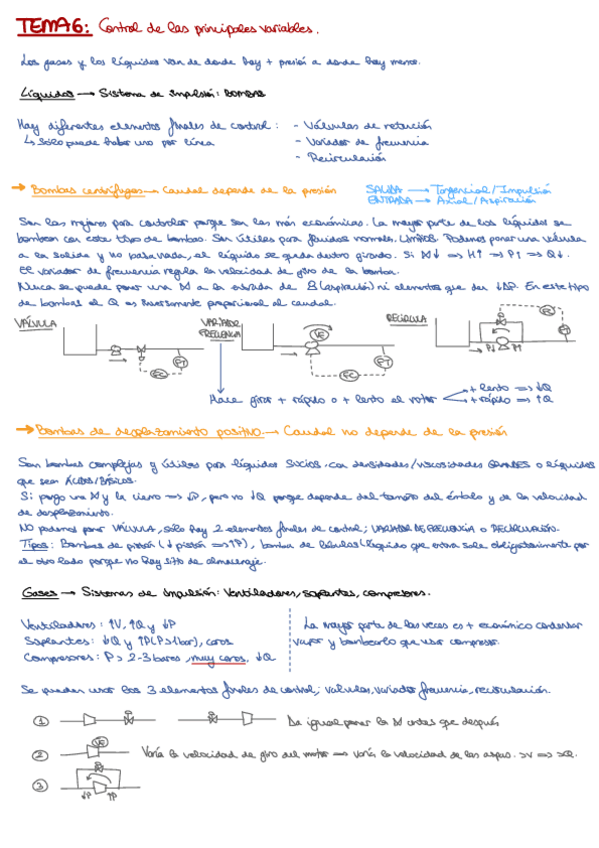 TEMA 6: Control de las principales variables.
Los gases y los líquidos van de donde hay + presión a donde hay menos.
Líquidos → Sistema de impulsión: BOMBAS
Hay diferentes elementos finales de control: - Válvulas de retención
↳ Sólo puede haber uno por línea - Variador de frecuencia
- Recirculación
→ Bombas centrífugas → Caudal depende de la presión SALIDA → Tangencial/Impulsión
ENTRADA → Axial/Aspiración
Son las mejores para controlar porque son las más económicas. La mayor parte de los líquidos se
bombean con este tipo de bombas. Son útiles para fluidos normales, LIMPIOS. Podemos poner una válvula
a la salida y no pasa nada, el líquido se queda dentro girando. Si ⋈↓ ⇒ H↑ ⇒ P↑ ⇒ Q↓.
El variador de frecuencia regula la velocidad de giro de la bomba.
Nunca se puede poner una ⋈ a la entrada de B (aspiración) ni elementos que den ↓ΔP. En este tipo
de bombas el Q es inversamente proporcional al caudal.
VÁLVULA VARIADOR FRECUENCIA RECIRCULA
FC FT VF FC FT FC FT
P↓ P↑
Hace girar + rápido o + lento el rotor + lento ⇒ ↓Q
+ rápido ⇒ ↑Q
→ Bombas de desplazamiento positivo. → Caudal no depende de la presión
Son bombas complejas y útiles para líquidos SUCIOS, con densidades/viscosidades GRANDES o líquidos
que sean ÁCIDOS/BÁSICOS.
Si pongo una ⋈ y la cierro ⇒ ↓P, pero no ↓Q porque depende del tamaño del émbolo y de la velocidad
de desplazamiento.
NO podemos poner VÁLVULA, sólo hay 2 elementos finales de control; VARIADOR DE FRECUENCIA o RECIRCULACIÓN.
Tipos: Bombas de pistón (↓ pistón ⇒ ↑P), bomba de lóbulos (líquido que entra sale obligatoriamente por
el otro lado porque no hay sitio de almacenaje.
Gases → Sistemas de impulsión: Ventiladores, soplantes, compresores.
Ventiladores: ↑V, ↑Q y ↓P
Soplantes: ↓Q y ↑P (P>1bar), caros
Compresores: P > 2-3 bares, muy caros, ↓Q
La mayor parte de las veces es + económico condensar
vapor y bombearlo que usar compresor.
Se pueden usar los 3 elementos finales de control; válvulas, variador frecuencia, recirculación.
1 Da igual poner la ⋈ antes que después
2 VF Varía la velocidad de giro del motor ⇒ varía la velocidad de las aspas. >V ⇒ >Q.
3 ↓P ↑P